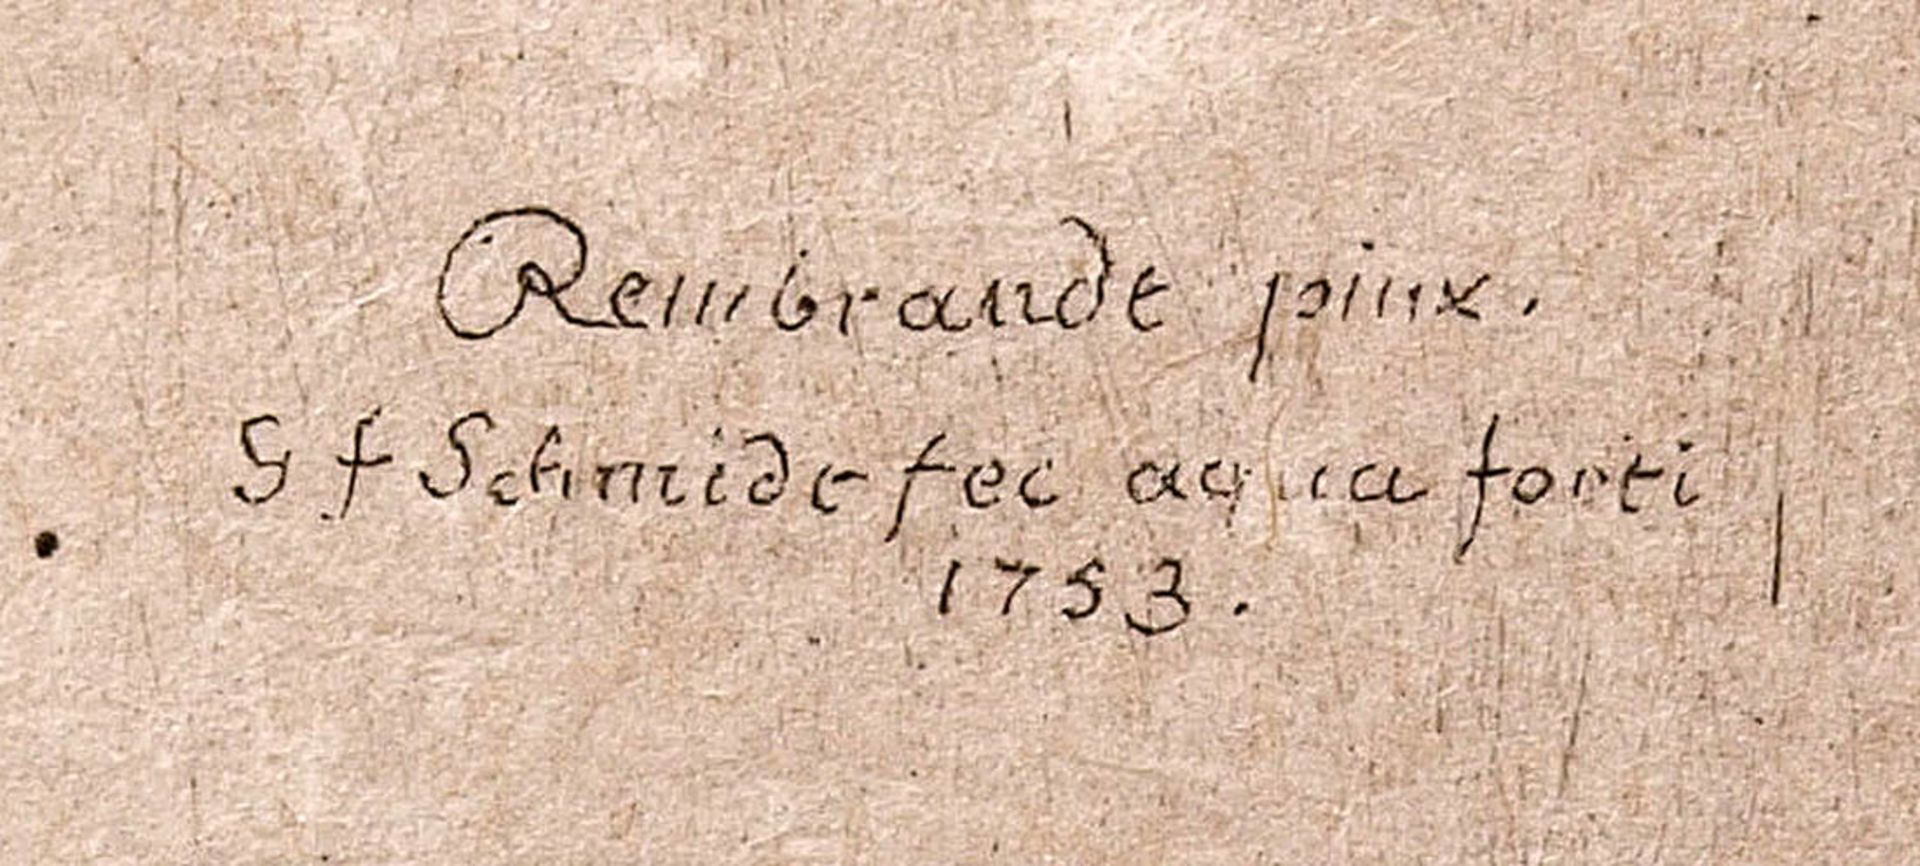 Rembrandt pinx.
G f Schmidt fec aqua forti
1753.